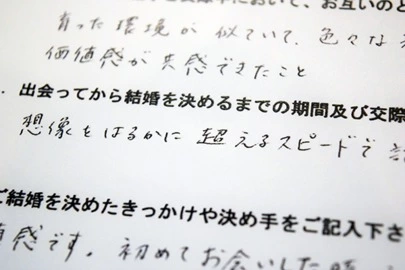 において、お互いのと
育った環境が似ていて、色々な
価値感が共感できたこと
出会ってから結婚を決めるまでの期間及び交際
想像をはるかに超えるスピードで
ご結婚を決めたきっかけや決め手をご記入下さ
直感です。初めてお会いした時